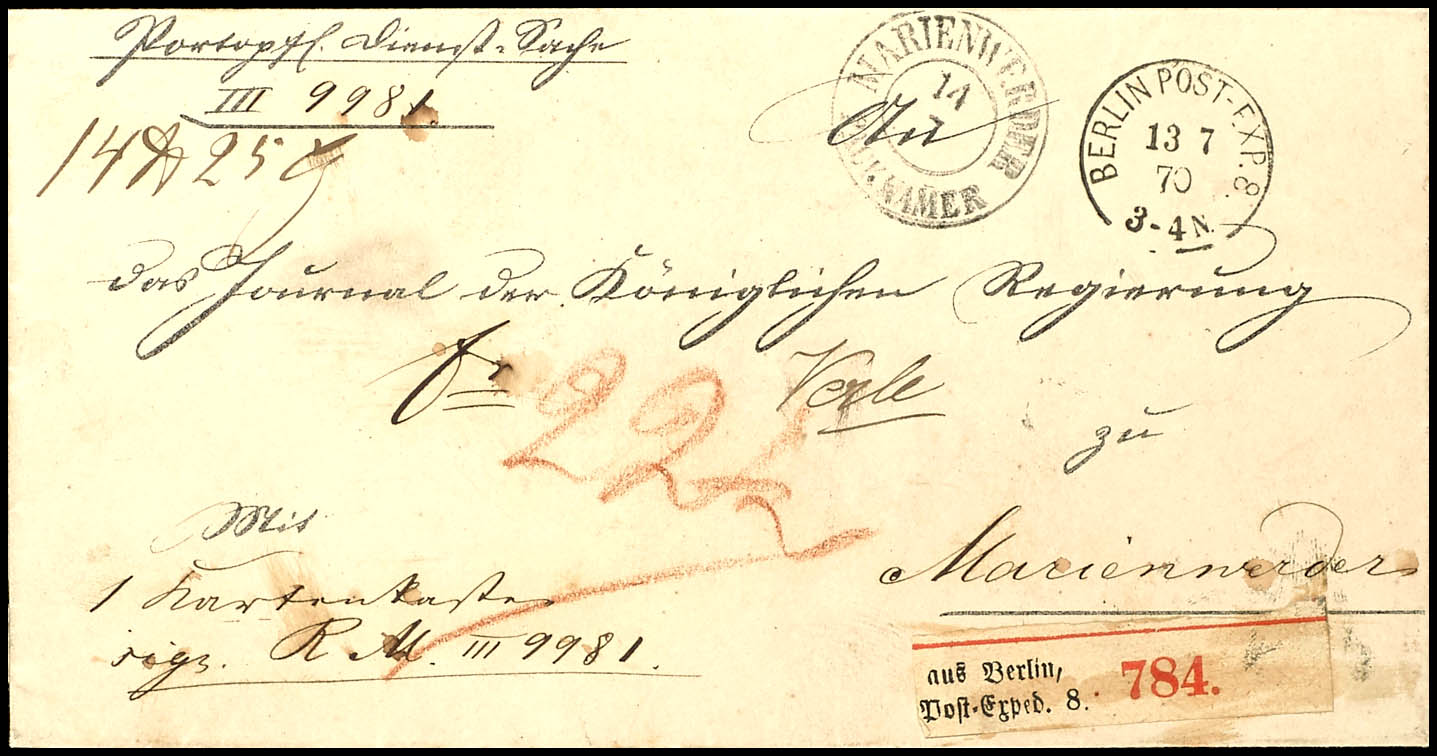 Portopfl. Dienst-Sache
III 9981.
14 25
MARIENWERDER
14
7
PACK.KAMER
BERLIN POST-EXP. 8.
13 7
70
3-4 N.
An
das Journal der Königlichen Regierung
zu
Marienwerder
Mit
1 Kartenkasten
sign. R. M. III 9981.
aus Berlin,
Post-Exped. 8.
784.